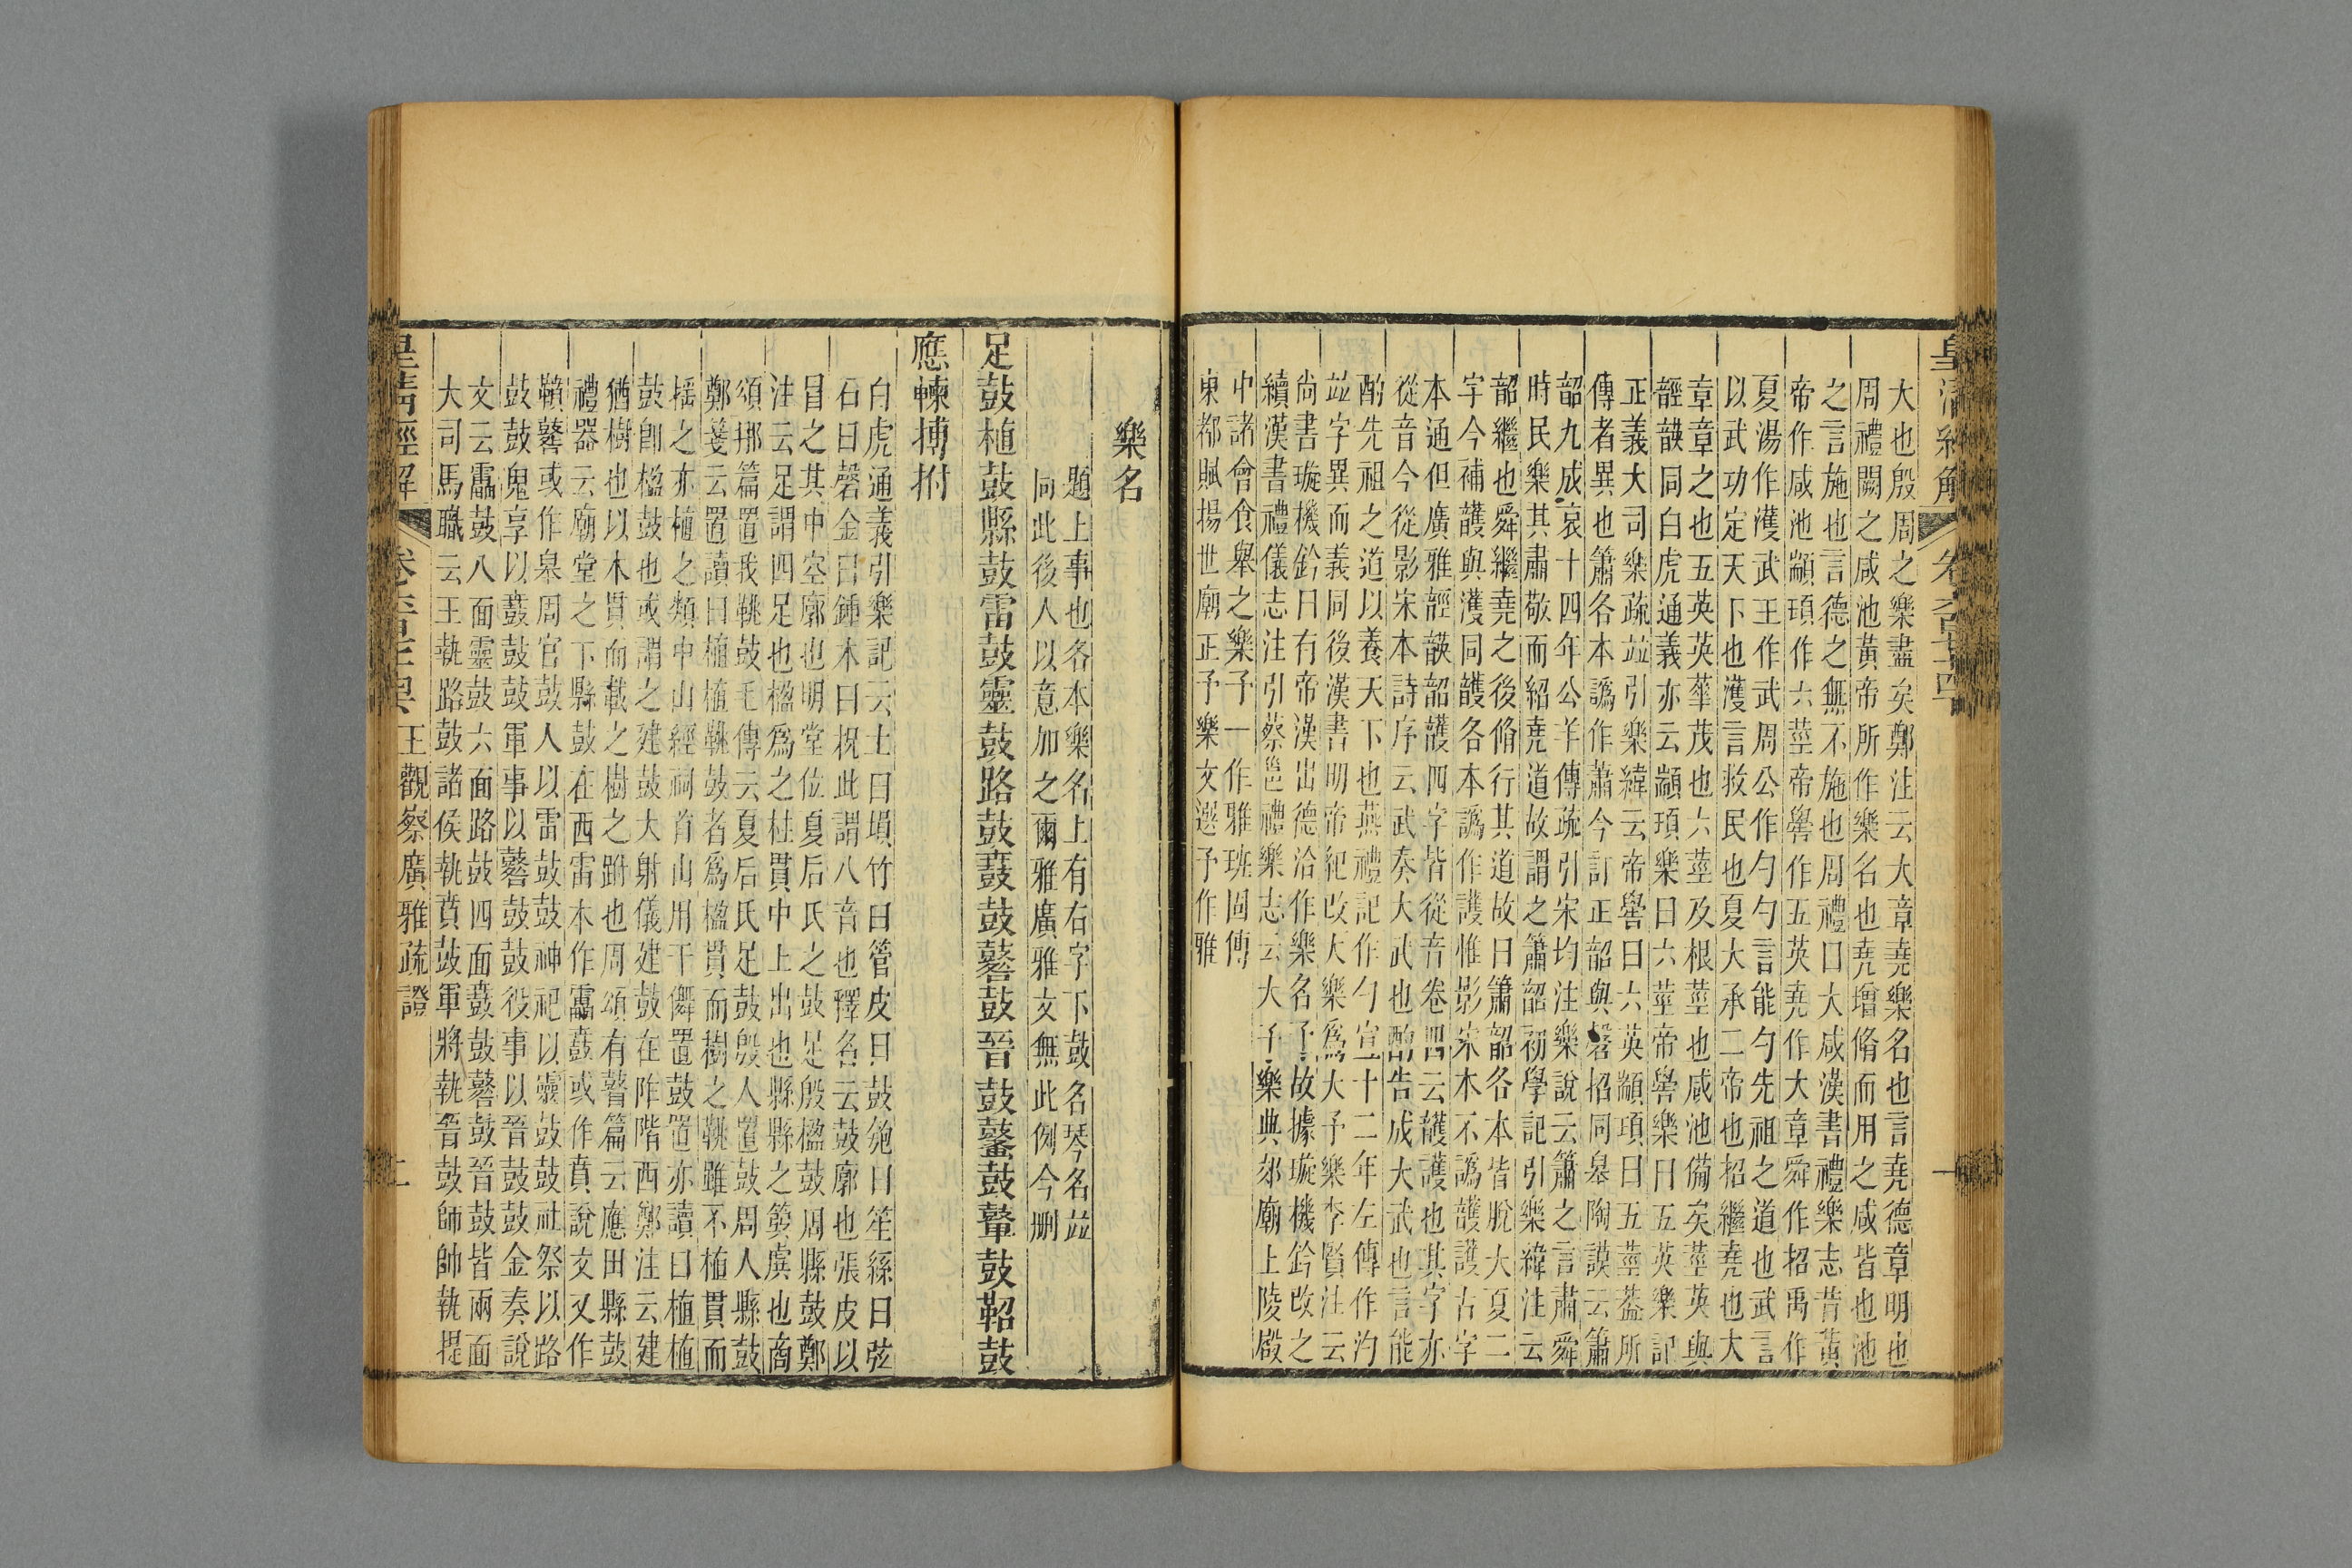 大也殷周之樂盡矣鄭注云大章堯樂名也言堯德章明也
周禮闕之咸池黃帝所作樂名也堯增脩而用之咸皆也池
之言施也言德之無不施也周禮曰大咸漢書禮樂志昔黃
帝作咸池顓頊作六莖帝嚳作五英堯作大章舜作招禹作
夏湯作濩武王作武周公作勺勺言能勺先祖之道也武言
以武功定天下也濩言救民也夏大承二帝也招繼堯也大
章章之也五英英華茂也六莖及根莖也咸池備矣莖英與
䪫韺同白虎通義亦云顓頊樂曰六莖帝嚳樂曰五英樂記
正義大司樂疏竝引樂緯云帝嚳曰六英顓頊曰五莖葢所
傳者異也簫各本譌作蕭今訂正韶與磬招同皋陶謨云簫
韶九成哀十四年公羊傳疏引宋均注樂說云簫之言肅舜
時民樂其肅敬而紹堯道故謂之簫韶初學記引樂緯注云
韶繼也舜繼堯之後脩行其道故曰簫韶各本皆脫大夏二
字今補護與濩同頀各本譌作護惟影宋本不譌頀護古字
本通但廣雅䪫韺韶頀四字皆從音卷四云頀護也其字亦
從音今從影宋本詩序云武奏大武也酌告成大武也言能
酌先祖之道以養天下也燕禮記作勺宣十二年左傳作汋
竝字異而義同後漢書明帝紀改大樂爲大予樂李賢注云
尚書璇機鈐曰有帝漢出德洽作樂名予故據璇機鈐改之
續漢書禮儀志注引蔡邕禮樂志云大予樂典郊廟上陵殿
中諸會食舉之樂予一作雅班固傳
東都賦揚世廟正予樂文選予作雅
樂名
題上事也各本樂名上有右字下鼓名琴名竝
同此後人以意加之爾雅廣雅文無此例今刪
足鼓植鼓縣鼓雷鼓靈鼓路鼓鼖鼓鼛鼓晉鼓鼜鼓鼙鼓鞀鼓
應朄搏拊
白虎通義引樂記云土曰塤竹曰管皮曰鼓匏曰笙絲曰弦
石曰磬金曰鍾木曰柷此謂八音也釋名云鼓廓也張皮以
冒之其中空廓也明堂位夏后氏之鼓足殷楹鼓周縣鼓鄭
注云足謂四足也楹爲之柱貫中上出也縣縣之簨虡也商
頌那篇置我鞉鼓毛傳云夏后氏足鼓殷人置鼓周人縣鼓
鄭箋云置讀曰植植鞉鼓者爲楹貫而樹之鞉雖不植貫而
搖之亦植之類中山經祠首山用干儛置鼓置亦讀曰植植
鼓卽楹鼓也或謂之建鼓大射儀建鼓在阼階西鄭注云建
猶樹也以木貫而載之樹之跗也周頌有瞽篇云應田縣鼓
禮器云廟堂之下縣鼓在西雷本作靁鼖或作賁說文又作
鞼鼛或作皋周官鼓人以雷鼓鼓神祀以靈鼓鼓社祭以路
鼓鼓鬼享以鼖鼓鼓軍事以鼛鼓鼓役事以晉鼓鼓金奏說
文云靁鼓八面靈鼓六面路鼓四面鼖鼓鼛鼓晉鼓皆兩面
大司馬職云王執路鼓諸侯執賁鼓軍將執晉鼓師帥執提
皇清經解 王觀察廣雅疏證